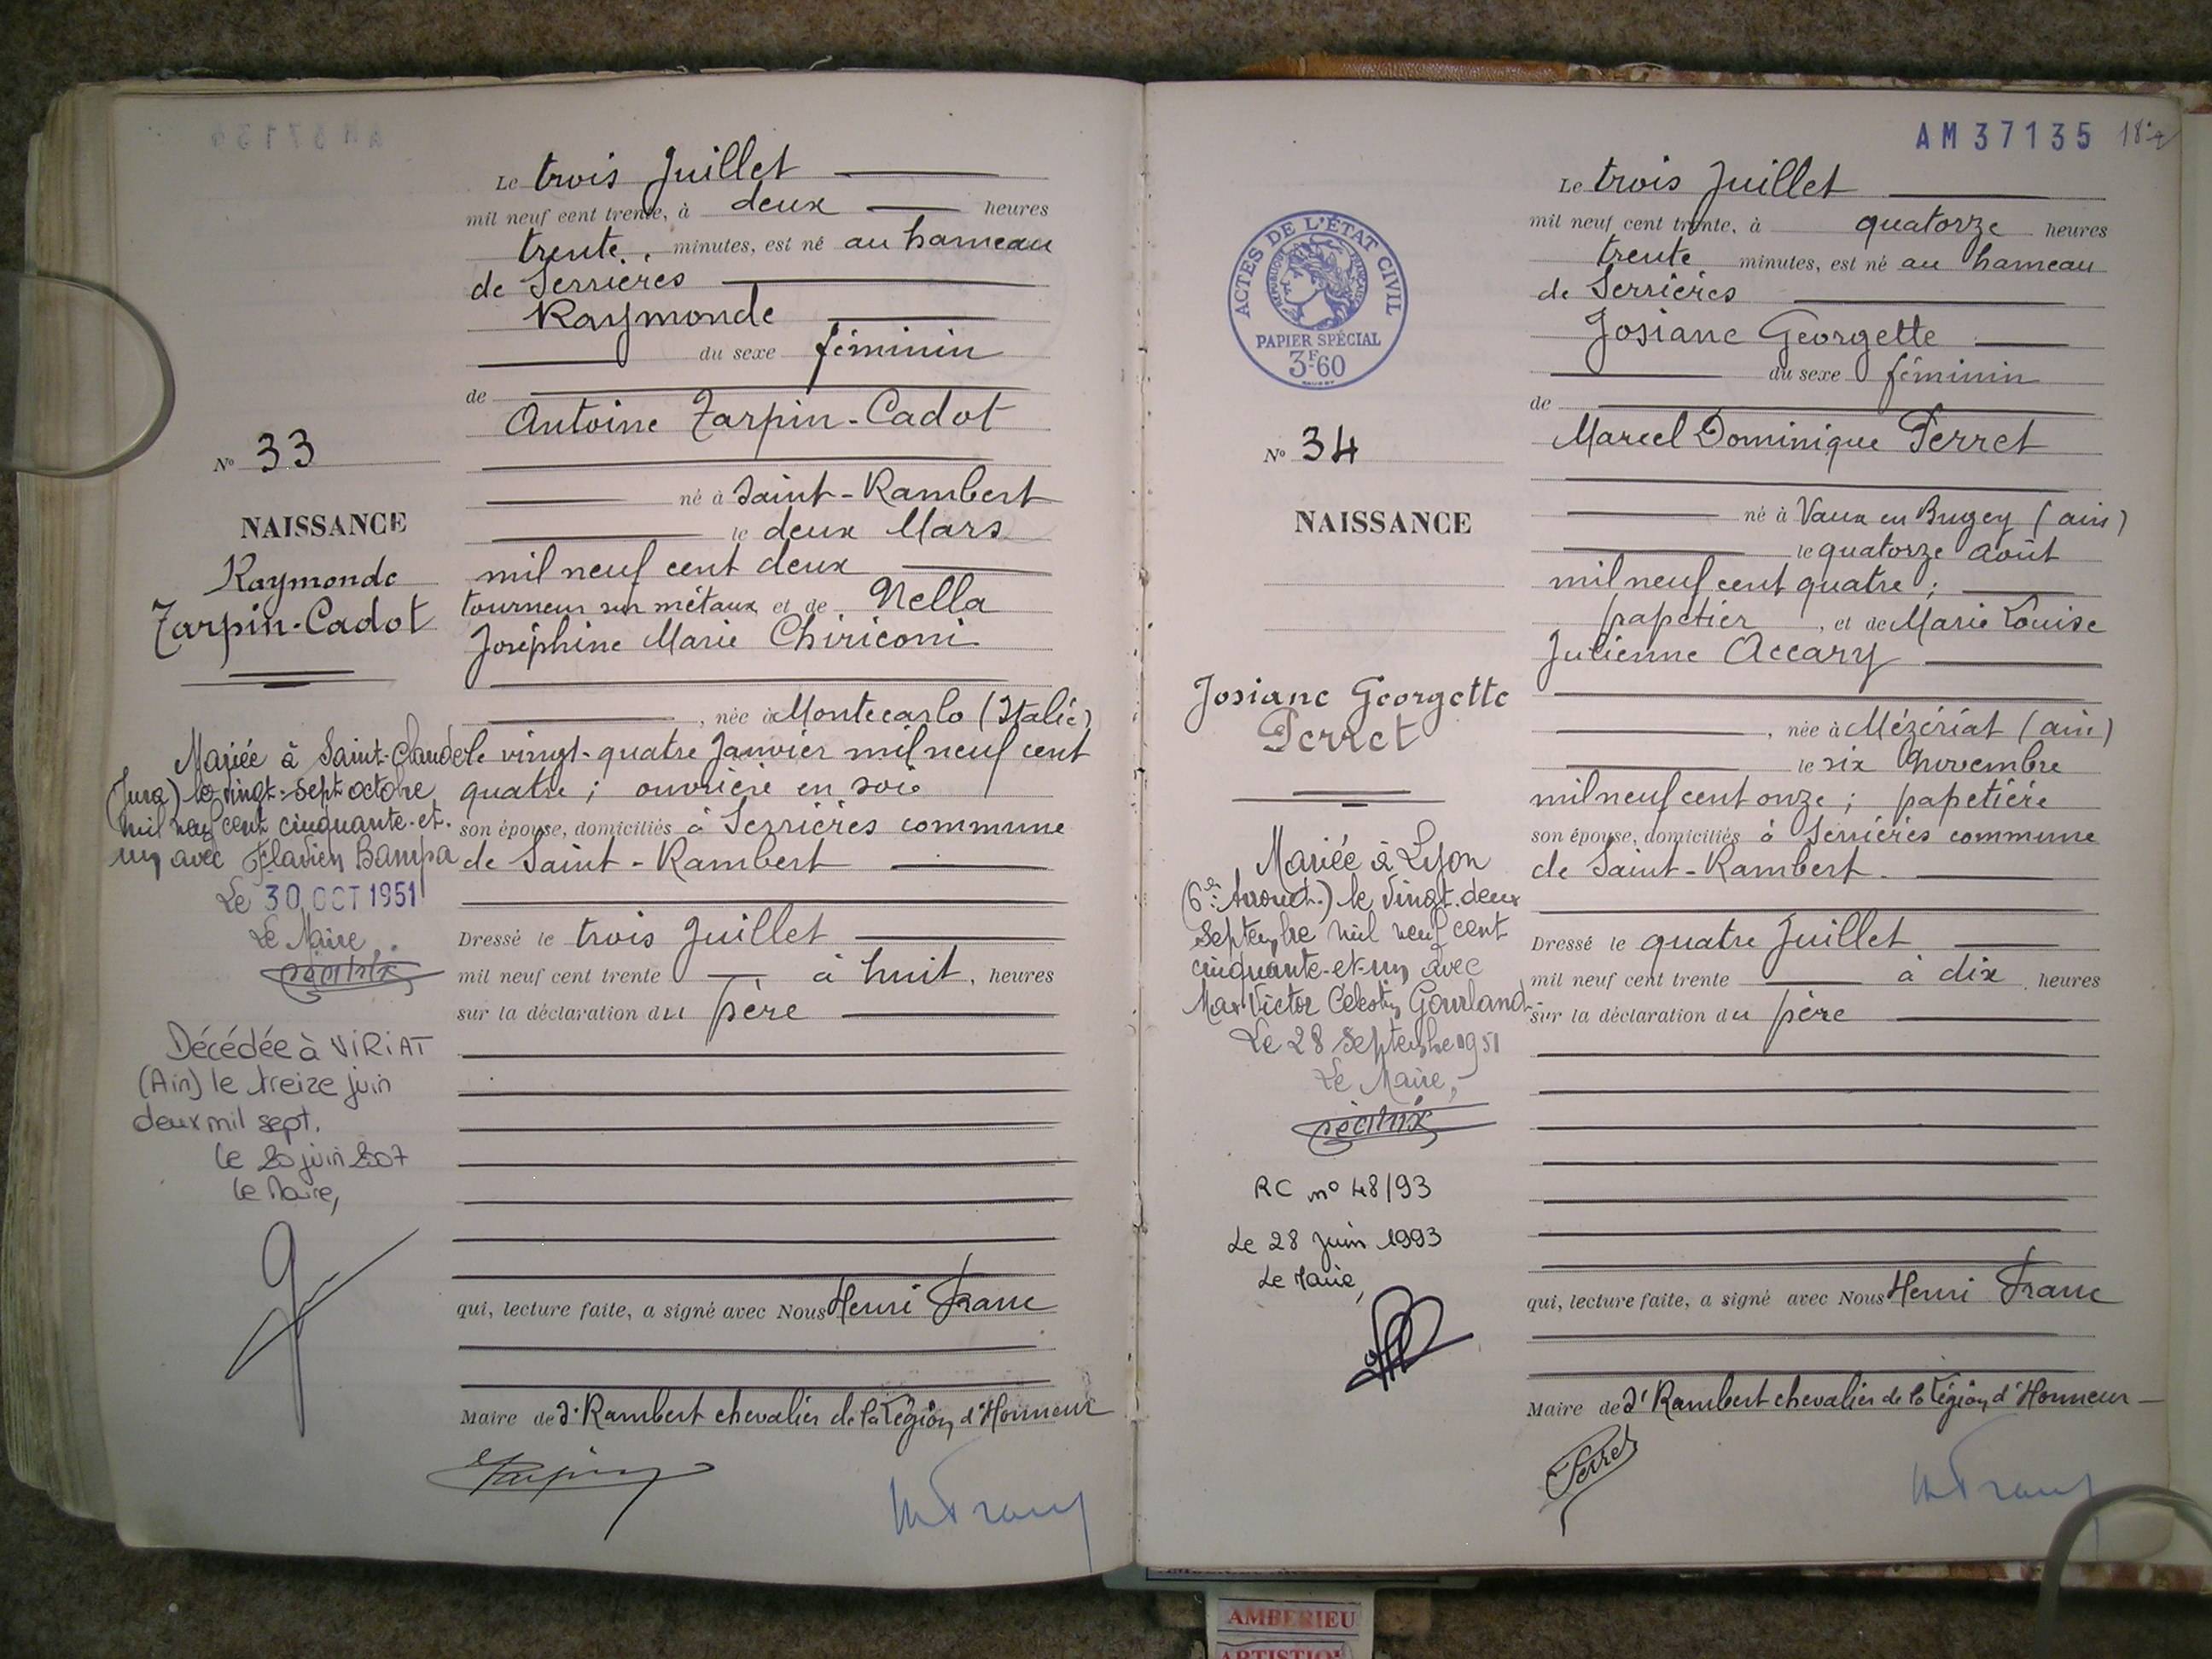 Le trois Juillet
mil neuf cent trente, à deux heures
trente minutes, est né au hameau
de Serrières
Raymonde
du sexe féminin
de
Antoine Tarpin-Cadot
né à Saint-Rambert
le deux Mars
mil neuf cent deux
tourneur sur métaux et de Nella
Joséphine Marie Chiriconi
, née à Montecarlo (Italie)
le vingt-quatre Janvier mil neuf cent
quatre ; ouvrière en soie
son épouse, domiciliés à Serrières commune
de Saint-Rambert
Dressé le trois Juillet
mil neuf cent trente à huit, heures
sur la déclaration du père
qui, lecture faite, a signé avec Nous Henri Franc
Maire de St Rambert chevalier de la Légion d'Honneur
Tarpin
H Franc
No 33
NAISSANCE
Raymonde
Tarpin-Cadot
Mariée à Saint-Claude
(Jura) le vingt-sept octobre
mil neuf cent cinquante-et-
un avec Flavien Bampa
Le 30 OCT 1951
Le Maire
Décédée à VIRIAT
(Ain) le treize juin
deux mil sept.
le 20 juin 2007
le Maire,
AM37135
ACTES DE L'ÉTAT CIVIL
RÉPUBLIQUE FRANÇAISE
PAPIER SPÉCIAL
3F60
Le trois Juillet
mil neuf cent trente, à quatorze heures
trente minutes, est né au hameau
de Serrières
Josiane Georgette
du sexe féminin
de
Marcel Dominique Perret
né à Vaux en Bugey (ain)
le quatorze août
mil neuf cent quatre ;
papetier, et de Marie Louise
Julienne Accary
, née à Mézériat (ain)
le six Novembre
mil neuf cent onze ; papetière
son épouse, domiciliés à Serrières commune
de Saint-Rambert.
Dressé le quatre Juillet
mil neuf cent trente à dix heures
sur la déclaration du père
qui, lecture faite, a signé avec Nous Henri Franc
Maire de St Rambert chevalier de la Légion d'Honneur
Perret
H Franc
No 34
NAISSANCE
Josiane Georgette
Perret
Mariée à Lyon
(6e Arrond.) le vingt-deux
Septembre mil neuf cent
cinquante-et-un avec
Max Victor Célestin Gourland
Le 28 Septembre 1951
Le Maire,
RC no 48/93
Le 28 Juin 1993
Le Maire,
AMBERIEU